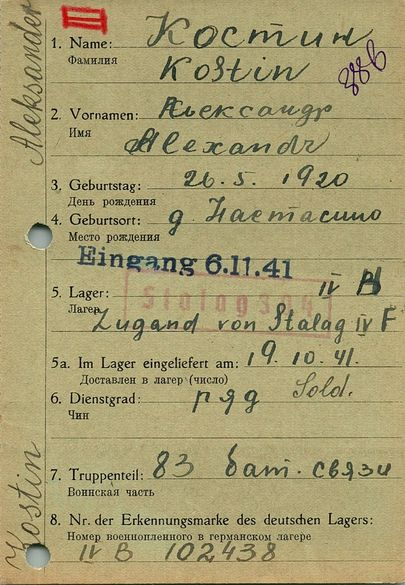 Aleksander
III
1. Name: Костин
Фамилия
Kostin
886
2. Vornamen: Александр
Имя
Alexandr
3. Geburtstag: 26. 5. 1920
День рождения
4. Geburtsort: д. Настасино
Место рождения
Eingang 6.11.41
5. Lager: IV B
Лагерь
Stalag 304
Zugand von Stalag IV F
5a. Im Lager eingeliefert am: 19. 10. 41.
Доставлен в лагер (число)
6. Dienstgrad: ряд Sold.
Чин
Kostin
7. Truppenteil: 83 бат. связи
Воинская часть
8. Nr. der Erkennungsmarke des deutschen Lagers:
Номер военнопленного в германском лагере
IV B 102438